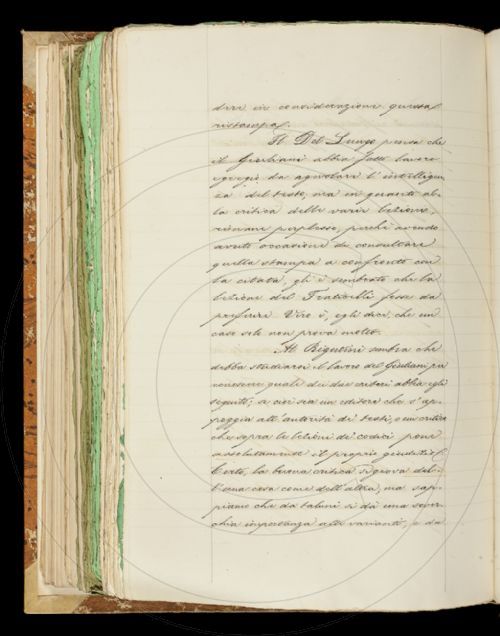 dere in considerazione questa
ristampa.
Il Del Lungo pensa che
il Giuliani abbia fatto lavoro
egregio da agevolare l'intelligen
za del testo, ma in quanto al
la critica delle varie lezioni,
rimane perplesso, perché avendo
avuto occasione di consultare
quella stampa a confronto con
la citata, gli è sembrato che la
lezione del Fraticelli fosse da
preferire. Vero è, egli dice, che un
caso solo non prova molto.
Al Bigazzini sembra che
debba studiarsi il lavoro del Giuliani per
conoscere quale dei due criteri abbia egli
seguito; se cioè sia un editore che s'ap-
poggia all'autorità di testi, o un critico
che sopra le lezioni di codici pone
assolutamente il proprio giudizio.
Certo, la buona critica si giova del-
l'una cosa come dell'altra, ma sap-
piamo che da taluni si dà una sover-
chia importanza alle varianti, e da